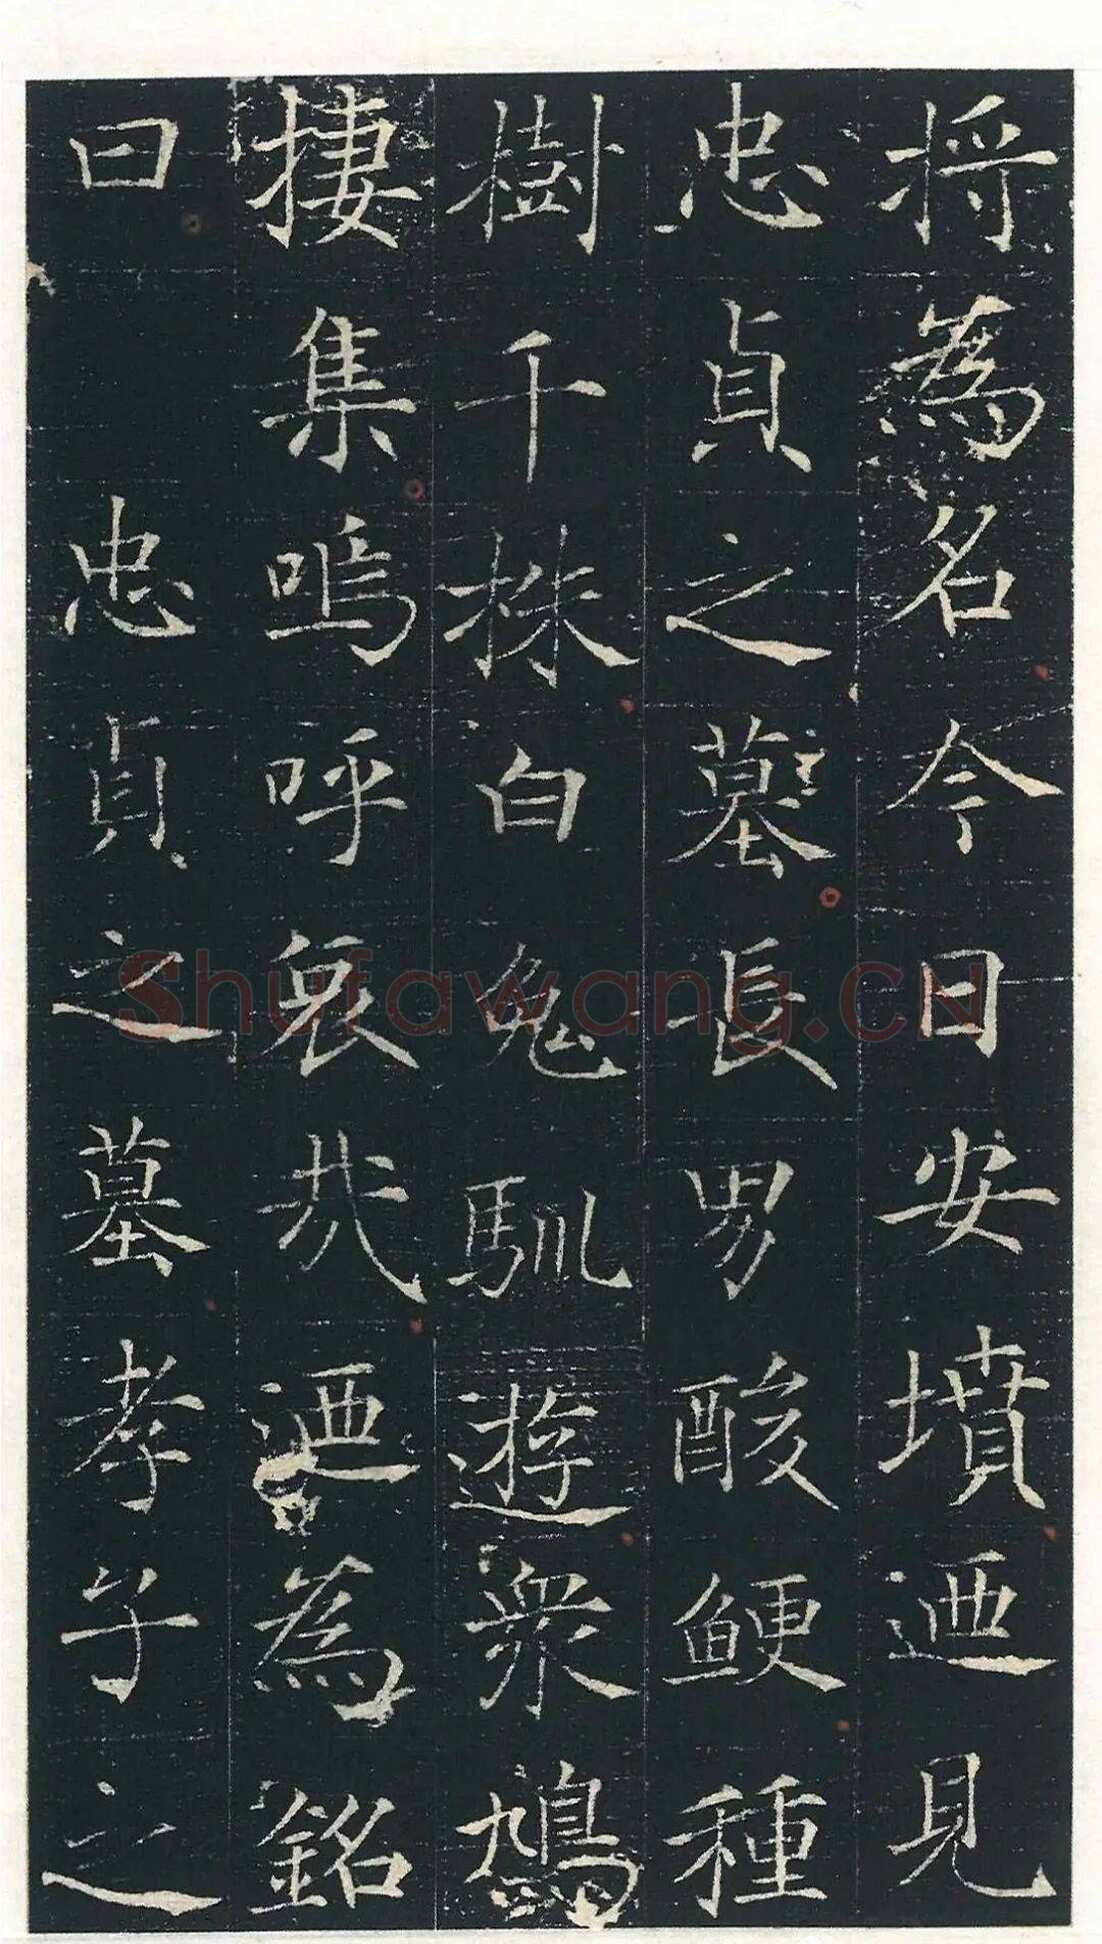 将為名今日安墳迺見
忠貞之墓長男酸鯁種
樹千株白兔馴遊衆鳩
捿集嗚呼哀哉迺為銘
曰 忠貞之墓孝子之
Shufawang.CN